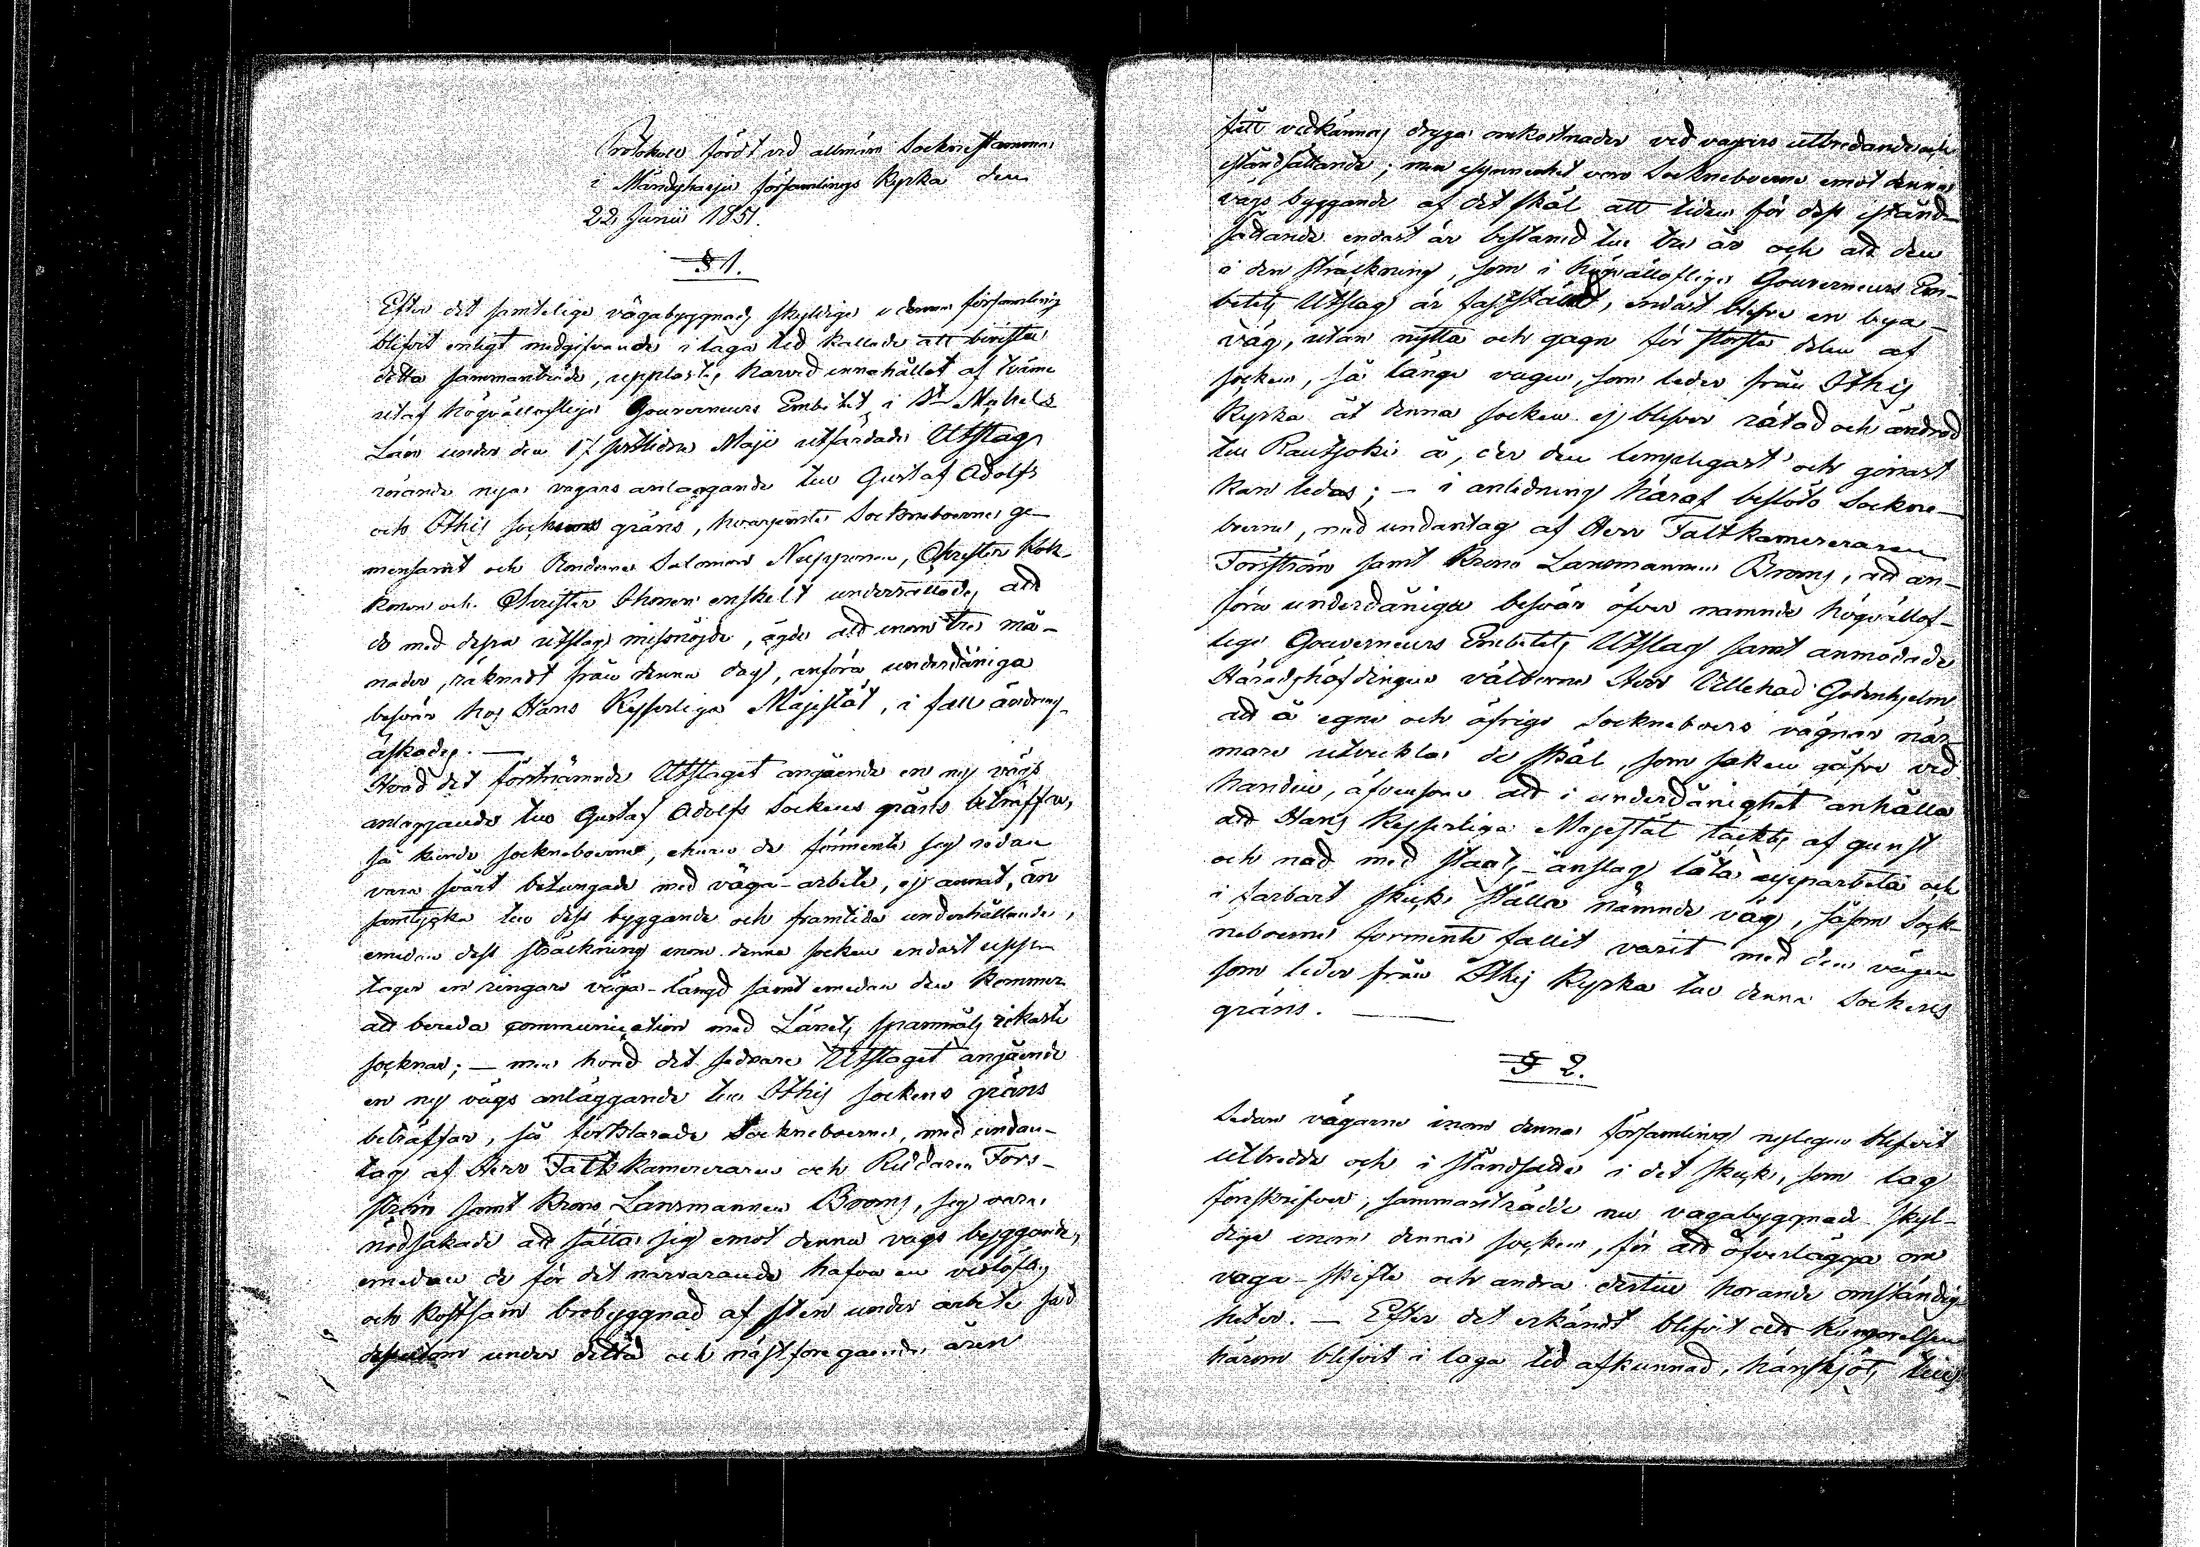 Protokoll fördt vid allmän Sockne stämma
i Mändyharju församlings Kyrka den
22 Junii 1851.
§ 1.
Efter det samtelige vägabyggnads skyldige i denna församling
blifvit enligt medgifvande i laga tid kallade att bivista
detta sammanträde, upplästes härvid innehållet af tvänne
utaf högvällofliga Gouverneurs Embetet i St Michels
Län under den 17 sistledne Maji utfärdade Utslag
rörande nya vägars anläggande till Gustaf Adolfs
och Ithis sockens gräns, hvarjemte Sockneboerne ge-
mensamt och Bönderne Salomon Nupponen, Christer Kok-
konen och Christer Ihonen enskelt underrättades, att
de med dessa utslag missnöjde, ägde att inom tre må-
nader, räknadt från denna dag, anföra underdåniga
besvär hos Hans Kejserliga Majestät, i fall ändring
äskades. —
Hvad det förstnämnde Utslaget angående en ny vägs
anläggande till Gustaf Adolfs Sockens gräns beträffar,
så kunde socknboerne, ehuru de förmente sig redan
vara svårt betungade med väga-arbete, ej annat, än
samtycka till dess byggande och framtida underhållande,
emedan dess sträckning inom denna socken endast upp-
tager en ringare väga-längd samt emedan den kommer
att bereda communication med Länets spannmåls rikaste
socknar; — men hvad det sednare Utslaget angående
en ny vägs anläggande till Ithis sockens gräns
beträffar, så förklarade Socknboerne, med undan-
tag af Herr Fältkamereraren och Riddaren Fors-
ström samt Krono Länsmannen Broms, sig vara
nödsakade att sätta sig emot denna vägs byggande,
emedan de för det närvarande hafva en vidlöftig
och kostsam brobyggnad af sten under arbete samt
dessutom under detta och nästföregående åren
fått vidkännas dryga omkostnader vid vägars utbredande och
iståndsättande; men synnerligt voro Sockneboerne emot denna
vägs byggande af det skäl att tiden för dess istånd-
sättande endast är bestämd till tre år och att den
i den sträckning, som i högvällofliga Gouverneurs Em-
betets Utslag är fastställd, endast blefve en bya-
väg, utan nytta och gagn för största delen af
socken, så länge vägen, som leder från Ithis
Kyrka åt denna socken ej blifver rätad och ändrad
till Rautjoki å, der den lämpligast och ginast
kan ledas; — i anledning häraf beslöto Sockne-
boerne, med undantag af Herr Fältkamereraren
Forsström samt Krono Länsmannen Broms, att an-
föra underdåniga besvär öfver nämnde högvällof-
liga Gouverneurs Embetets Utslag samt anmodade
Häradshöfdingen välborne Herr Villehad Godenhjelm
att å egna och öfriga Sockneboers vägnar när-
mare utveckla de skäl, som saken gåfve vid
handen, äfvensom att i underdånighet anhålla
att Hans Kejserliga Majestät täcktes af gunst
och nåd med Staats-anslag låta upparbeta och
i farbart skick ställa nämnde väg, såsom Sock-
neboerne förmente fallit varit med den vägen
som leder från Ithis Kyrka till denna Sockens
gräns. —
§ 2.
Sedan vägarne inom denna församling nyligen blifvit
utbredde och i ståndsatte i det skick, som lag
föreskrifver, sammanträdde nu vägabyggnads skyl-
dige inom denna socken, för att öfverlägga om
väga-skifte och andra dertill hörande omständig-
heter. — Efter det erkändt blifvit att kungörelsen
härom blifvit i laga tid afkunnad, hänsköts till